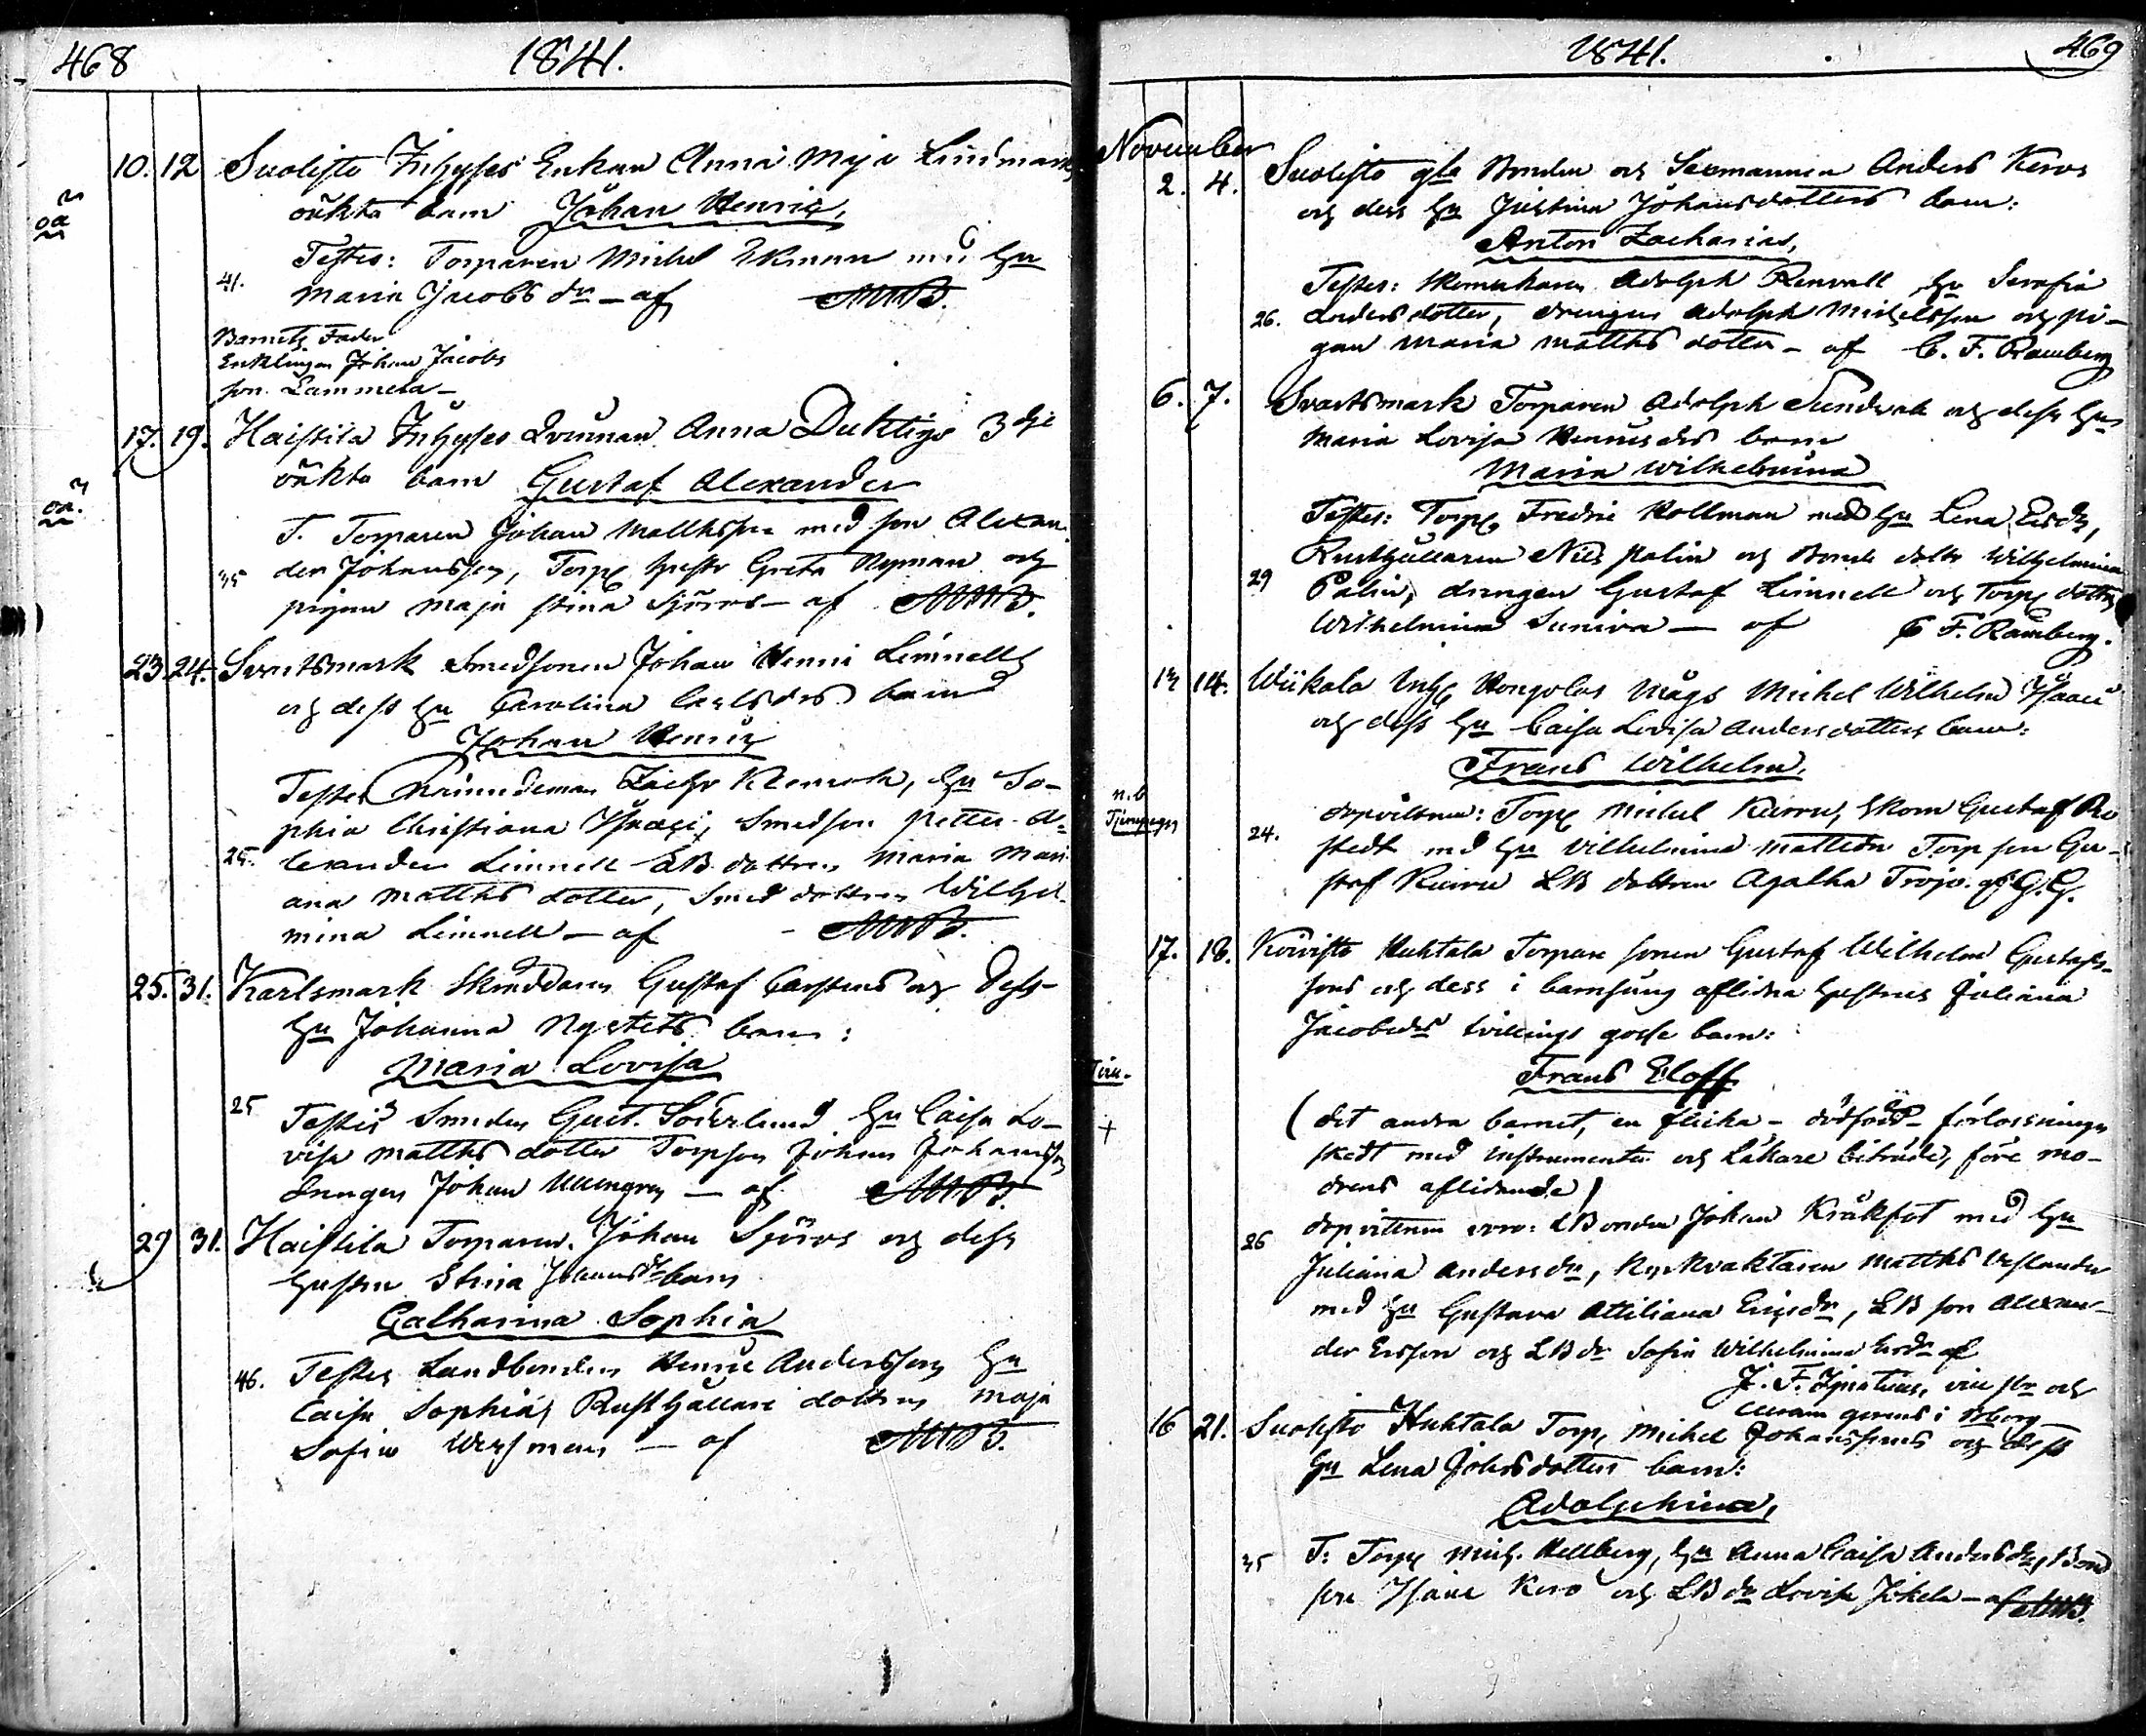 468
1841.
10. 12 Suolisto Inhyses Enkan Anna Maja Lindmans
oäkta barn Johan Henric,
oä
Testes: Torparen Michel Ekman med hu
41. Maria Jacobs dr – af MWB.
Barnets Fader
Enklingen Johan Jacobs
son Lammela –
17. 19. Haistila Inhyses Qvinnan Anna Duktigs 3dje
oäkta barn Gustaf Alexander
oä.
T. Torparen Johan Matthsson med son Alexan
35 der Johansson, Torp hustr Greta Nyman och
pigan Maja Stina Sjöros – af MWB.
23. 24. Svartsmark Smedsonen Johan Henric Limnells
och dess hu Carolina Carlsdrs barn
Johan Henric
Testes Zachr hu So-
phia Christiana Smedson Petter A-
25. lexander Limnell LB dottren Maria Mari
ana Matths dotter, Smed dottren Wilhel-
mina Limnell – af MWB.
25. 31. Karlsmark Skräddaren Gustaf Carstens och Dess
hu Johanna Nystets barn:
Maria Lovisa
25 Testes Smeden Gust. Söderlund hu Caisa Lo-
visa Matths dotter Torpson Johan Johansson
Drengen Johan – af MWB.
29 31. Haistila Torparen Johan Sjöros och dess
hustru Stina Johansdr barn
Catharina Sophia
46. Testes Landbonden Henric Andersson hu
Caisa Sophia, Rusthållare dottren Maja
Sofia – af MWB.
1841.
469
November
2. 4. Suolisto gla Bonden och Sexmannen Anders Keros
och dess hu Justina Johansdotters barn:
Anton Zacharias,
Testes: Skomakaren Adolph Renvall hu Serafia
26. Andersdotter, drengen Adolph Michelsson och pi-
gan Maria Matths dotter – af C. F. Ramberg
6. 7. Svartsmark Torparen Adolph Sundvall och dess hu
Maria Lovisa Henricsdrs barn
Maria Wilhelmina
Testes: Torp Fredric Kollman med hu Lena Ersdr,
Rusthållaren Nils Palin och Bonde dottr Wilhelmina
29 Palin, drengen Gustaf Limnell och Torp dottren
Wilhelmina Suniva – af C F. Ramberg.
13 14. Wiikala Inh Hongolas Mågs Michel Wilhelm Isaacs
och dess hu Caisa Lovisa Andersdotters barn:
Frans Wilhelm.
n.b
dopvittnen: Torp Michel Kiiru, Skom Gustaf Ro
24. stedt med hu Vilhelmina Mattsdr Torp son Gu-
staf Kiiru LB dottren Agatha Trojo. af G. G.
17. 18. Koivisto Huhtala Torpare sonen Gustaf Wilhelm Gustafs-
sons och dess i barnsäng aflidna hustrus Juliana
Jacobsdrs tvillings gosse barn:
Frans Eloff
(det andra barnet, en flicka – dödfödd – förlossningen
+
skedt med instrumenter och Läkare biträde, före mo-
drens aflidande)
dopvittnen voro: LBonden Johan Kråkfot med hu
26 Juliana Andersdr, Kyrkvaktaren Matths Veslander
med hu Gustava Attiliana Ericsdr, LB son Alexan-
der Ersson och LB dr Sofia Wilhelmina Ersdr af
J. F. Ignatius, vice Pr och
curam gerens i
16 21. Suolisto Huhtala Torp, Michel Johanssons och dess
hu Lena Johsdotters barn:
Adolphina,
35 T: Torp Mich. Hellberg, hu Anna Caisa Andersdr, Bond
son Isaac Kero och LB dr Lovisa Jokela – af MWB.